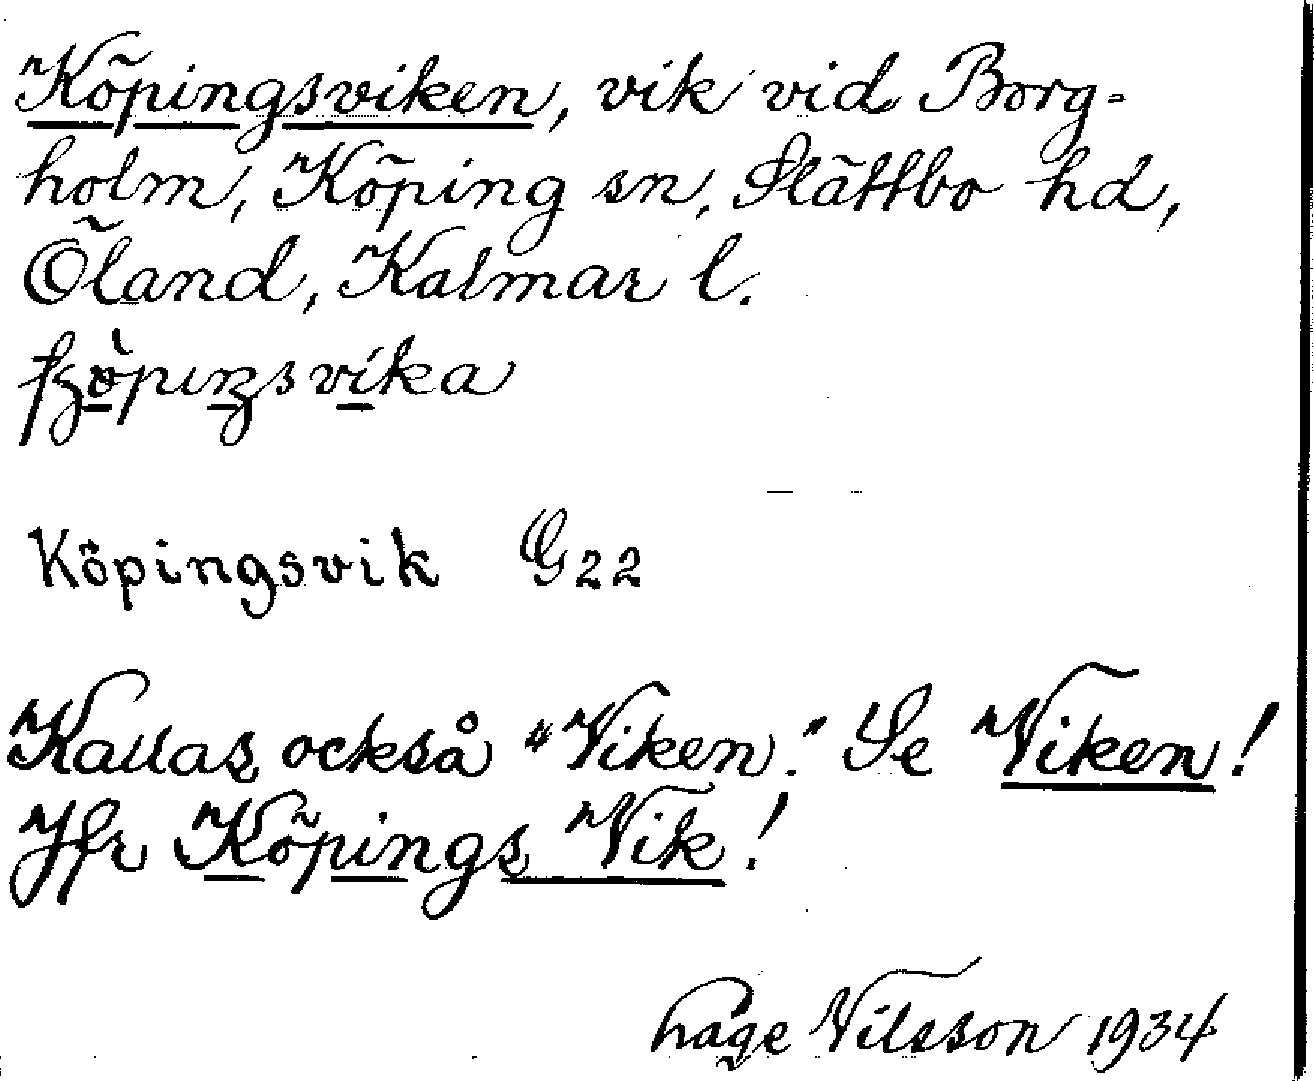 Köpingsviken, vik vid Borg-
holm, Köping sn, Slättbo hd,
Öland, Kalmar l.
Köpingsvik G22
Kallas också "Viken." Se Viken!
Jfr Köpings Vik!
Håge Nilsson 1934